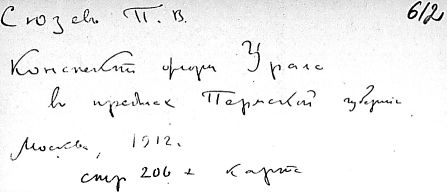 Сюзев П. В. 612
Конспект флоры Урала
в пределах Пермской губернии
Москва, 1912.
стр 206 + карта